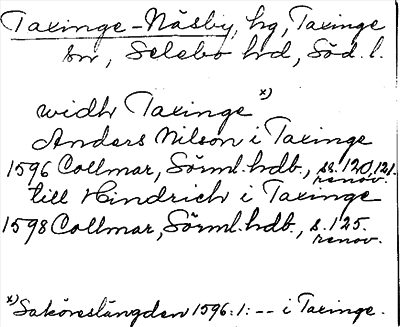 Taxinge-Näsby, hg, Taxinge
sn, Selebo hd, Söd. l.
widh Taxinge x)
Anders Nilson i Taxinge
1596 Collmar, Sörml. hdb., ss. 120, 121.
renov.
till Hindrich i Taxinge
1598 Collmar, Sörml. hdb., s. 125.
renov.
x) Saköreslängden 1596:1: -- i Taxinge.